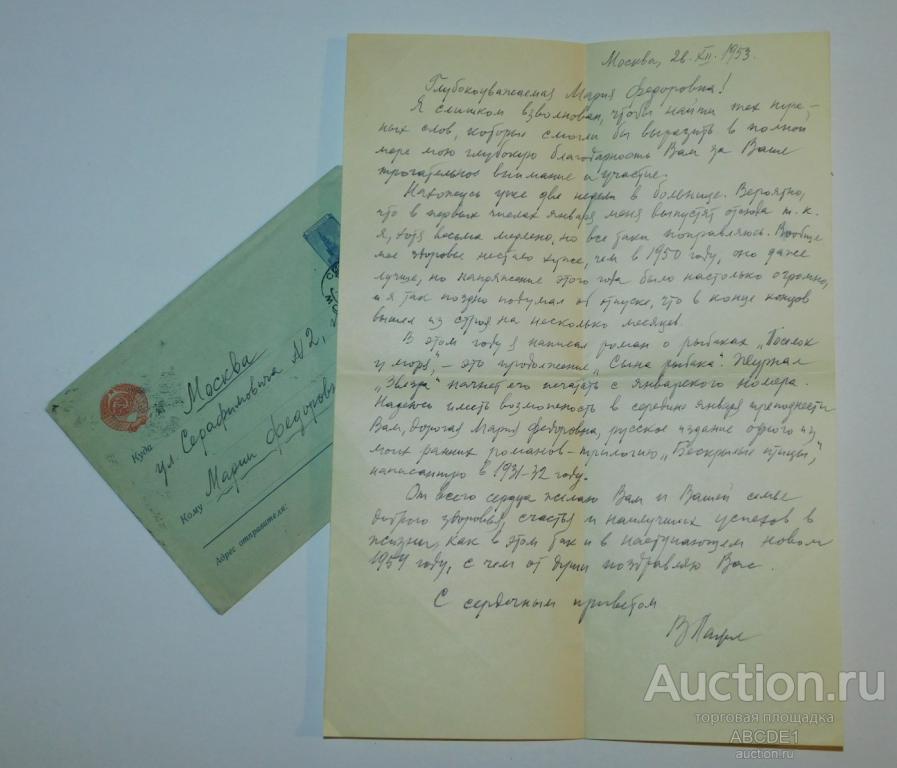 Москва, 28. XII. 1953.
Глубокоуважаемая Мария Федоровна!
Я слишком взволнован, чтобы найти тех нуж-
ных слов, которые смогли бы выразить в полной
мере мою глубокую благодарность Вам за Ваше
трогательное внимание и участие.
Нахожусь уже две недели в больнице. Вероятно,
что в первых числах января меня выпустят отсюда т. к.
я, хотя весьма медлено, но все таки поправляюсь. Вообще
мое здоровье нестало хуже, чем в 1950 году, оно даже
лучше, но напряжение этого года было настолько огромно,
и я так поздно подумал об отпуске, что в конце концов
вышел из строя на несколько месяцев.
В этом году я написал роман о рыбаках „Поселок
у моря", – это продолжение „Сына рыбака". Журнал
„Звезда" начнет его печатать с январского номера.
Надеюсь иметь возможность в середине января преподнести
Вам, дорогая Мария Федоровна, русское издание одного из
моих ранних романов – трилогию „Бескрылые птицы",
написанную в 1931-32 году.
От всего сердца желаю Вам и Вашей семье
доброго здоровья, счастья и наилучших успехов в
жизни, как в этом так и в наступающем новом
1954 году, с чем от души поздравляю Вас.
С сердечным приветом
В Лацис
Куда
Москва
ул. Серафимовича №2,
Кому
Марии Федоровн
Адрес отправителя:
Auction.ru
торговая площадка
ABCDE1
auction.ru